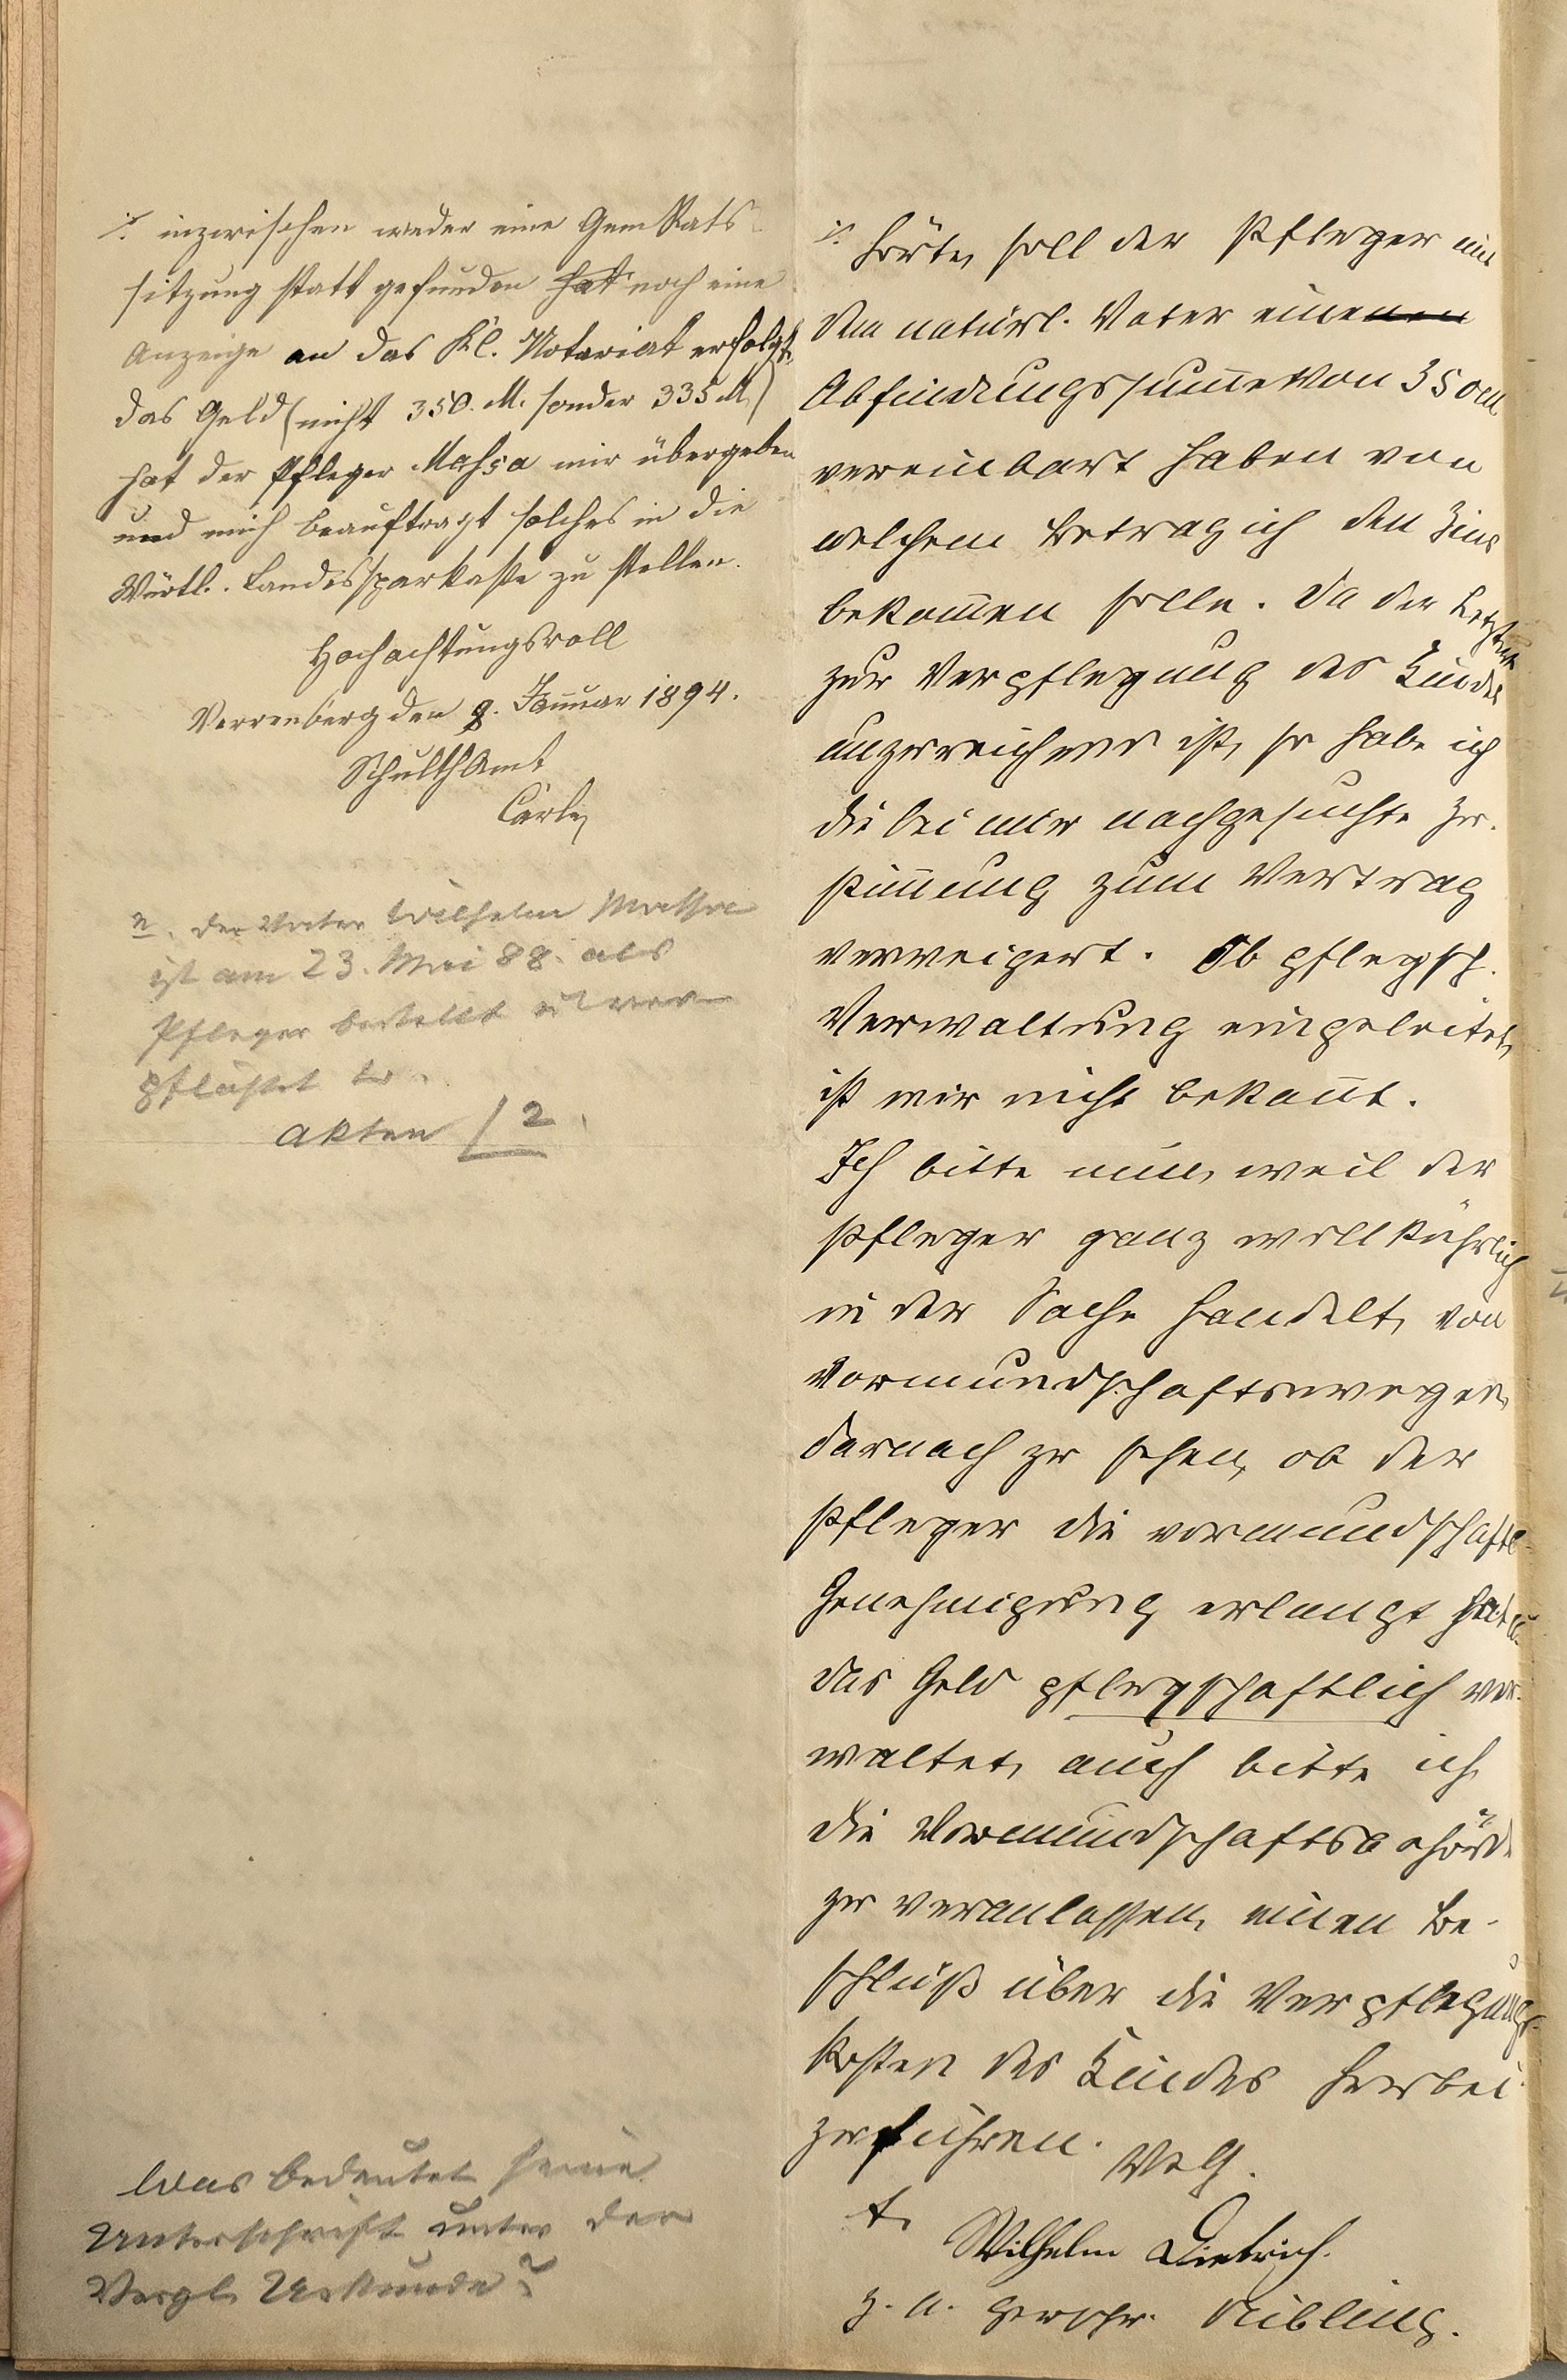 ./. inzwischen weder eine Gem Rats-
sitzung statt gefunden hat noch eine
Anzeige an das Kl. Notariat erfolgt,
das Geld (nicht 350. M. sonder 335 M.)
hat der Pfleger Massa mir übergeben
und mich beauftragt solches in die
Württ. Landessparkasse zu stellen.
Hochachtungsvoll
Verrenberg den 8. Januar 1894.
SchulthAmt
Carle
n. der Vater Wilhelm Massa
ist am 23. Mai 88. als
Pfleger bestellt u. ver-
pflichtet
Akten / 2
Was bedeutet seine
Unterschrift unter der
Vergl. Urkunde?
./. hörte, soll der Pfleger mit
dem natürl. Vater einenen
Abfindungssumme von 350 M
vereinbart haben von
welchem Betrag ich den Zins
bekommen solle. Da der Letztere
zur Verpflegung des Kindes
unzureichend ist, so habe ich
die bei mir nachgesuchte Zu-
stimmung zum Vertrag
verweigert. Ob pflegsch.
Verwaltung eingeleitet,
ist mir nicht bekannt.
Ich bitte nun, weil der
Pfleger ganz willkührlich
in der Sache handelt, von
Vormundschaftswegen
darnach zu sehen, ob der
Pfleger die vormundschaftl.
Genehmigung erlangt hat u.
das Geld pflegschaftlich ver-
waltet, auch bitte ich
die Vormundschaftsbehörde
zu veranlassen, einen Be-
schluß über die Verpflegungs-
kosten des Kindes herbei-
zuführen. VolG.
t.
Wilhelm Dietrich.
z. u. Gerschr. Nibling.